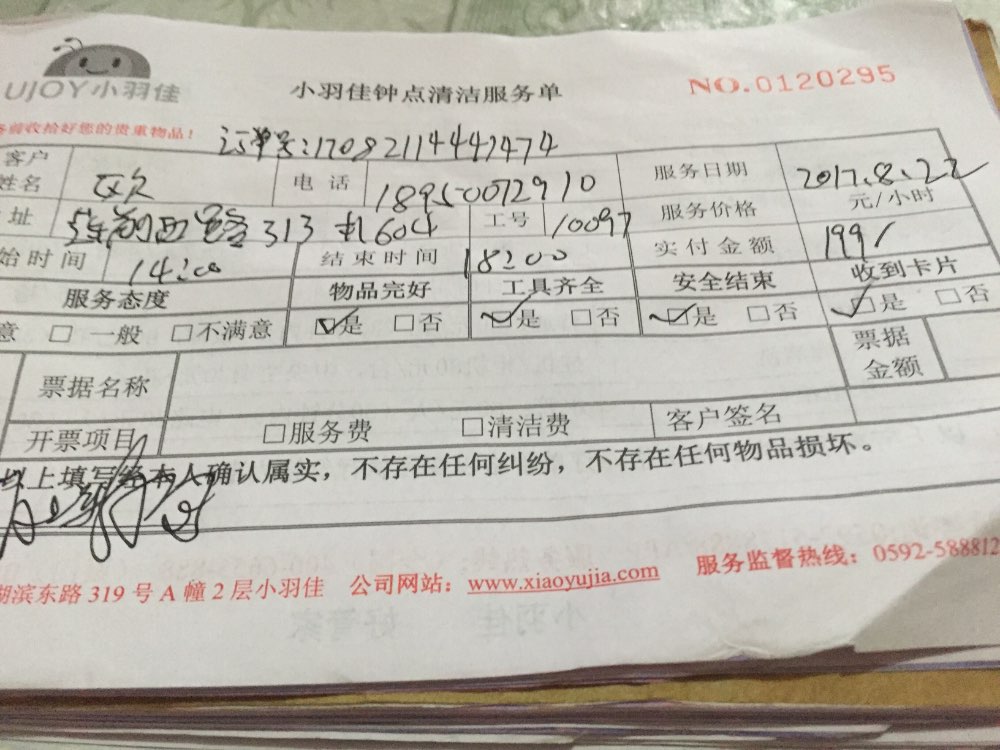 UJOY小羽佳
小羽佳钟点清洁服务单
NO.0120295
务前收拾好您的贵重物品！
订单号:17082114447474
客户姓名 电话 18950072910 服务日期 2017.8.22
址 莲前西路313 604 工号 10097 服务价格 元/小时
始时间 14:00 结束时间 18:00 实付金额 199
服务态度 物品完好 工具齐全 安全结束 收到卡片
意 □ 一般 □不满意 ☑是 □否 ☑是 □否 ☑是 □否 ☑是 □否
票据名称 票据金额
开票项目 □服务费 □清洁费 客户签名
以上填写经本人确认属实，不存在任何纠纷，不存在任何物品损坏。
湖滨东路 319 号 A 幢 2 层小羽佳 公司网站：www.xiaoyujia.com 服务监督热线：0592-588812